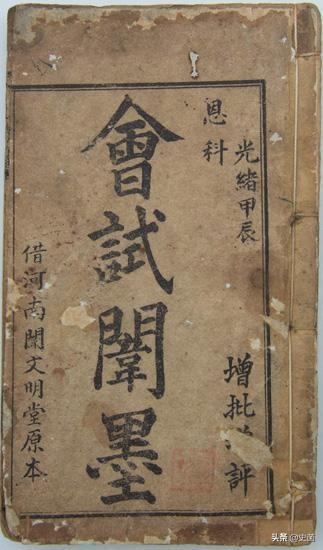 光緒甲辰
恩科
增批評
會試闈墨
借河南闈文明堂原本
头条 @史茵